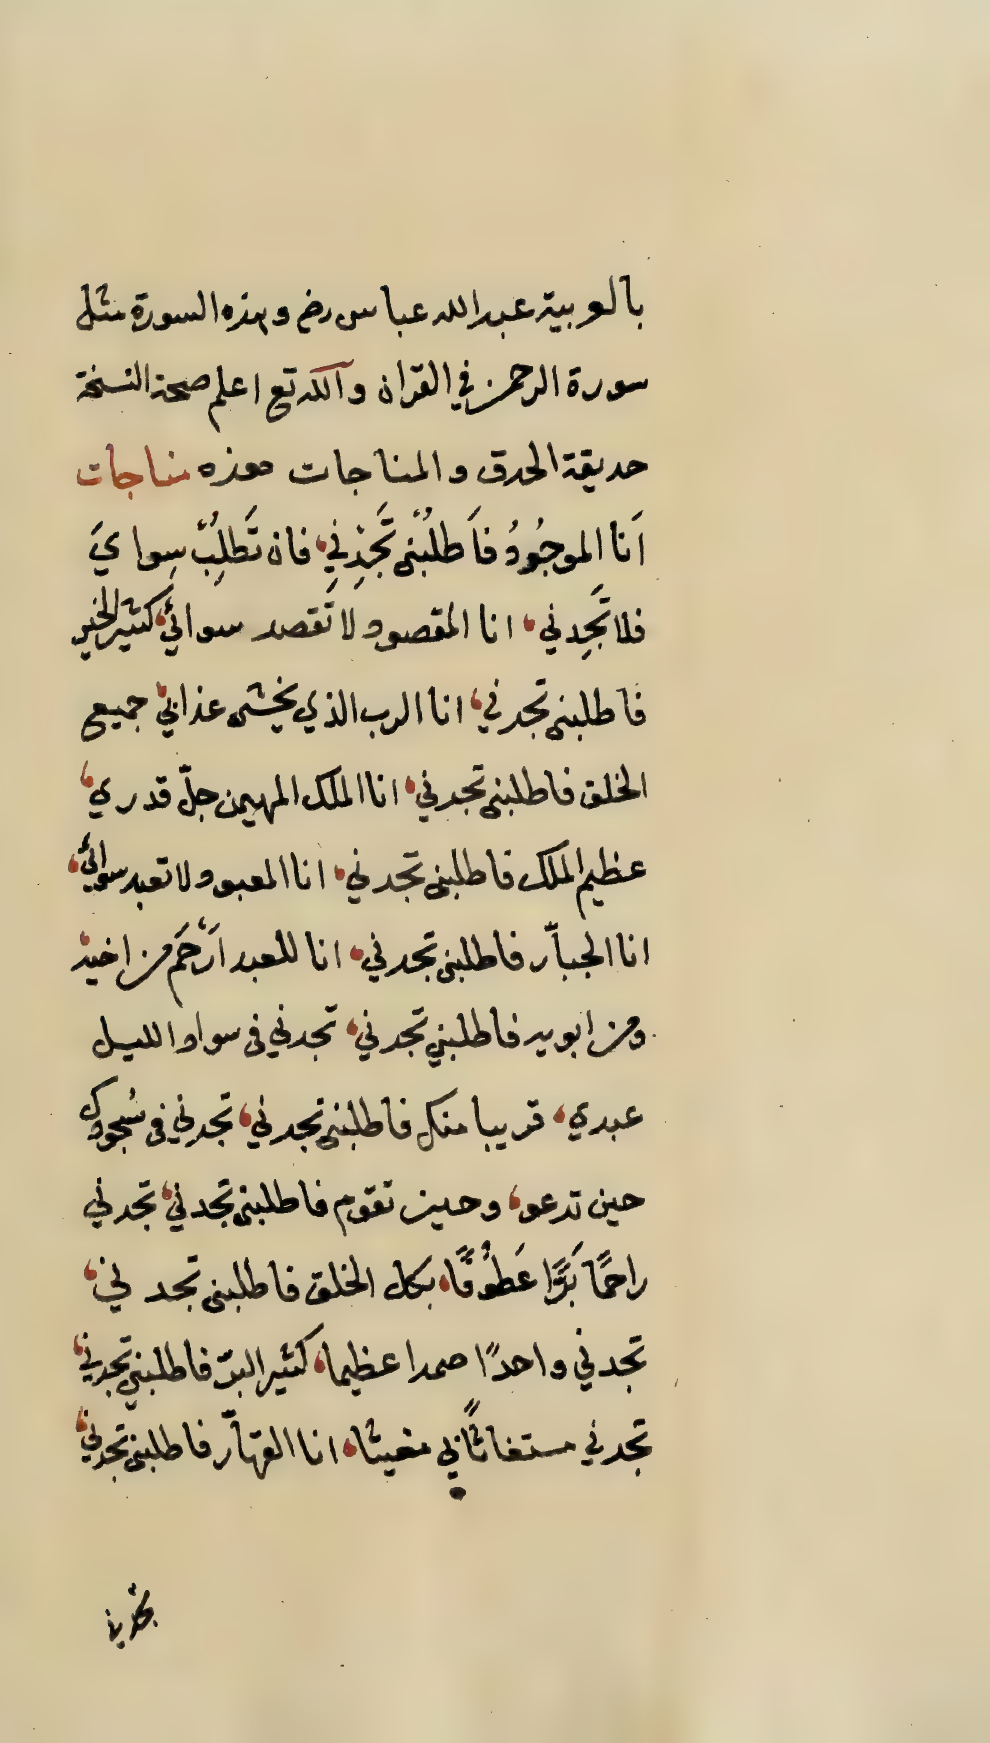 بالعربية عبد الله عباس رض وهذه السورة مثل
سورة الرحمن في القران والله تع اعلم صحة النسخة
حديقة الحدق والمناجات هوذه مناجات
اَنا الموجُودُ فاَطلُبْنى تَجِدْنِي فان تَطلِبْ سِوايَ
فلا تَجِدني انا المقصود لا تَقصد سوائي كثير الخير
فاطلبنى تجدني انا الرب الذي يخشى عذابي جميع
الخلق فاطلبنى تجدني انا الملك المهيمن جلّ قدري
عظيم الملك فاطلبنى تجدني انا المعبود لا تعبد سوائي
انا الجباّر فاطلبنى تجدني انا للعبد اَرْحَم من اخيه
ومن ابويه فاطلبني تجدني تجدني فى سواد الليل
عبدي قريبا منك فاطلبنى تجدني تجدني فى سُجودك
حين تدعو وحين تقوم فاطلبنى تجدني تجدني
راحمًا بَرًّا عَطوُفًا بكل الخلق فاطلبنى تجدني
تجدني واحدًا صمدا عظيما كثير البرّ فاطلبني تجدني
تجدني مستغاثًا بي مغيثا انا القهاّر فاطلبنى تجدني
تجدني